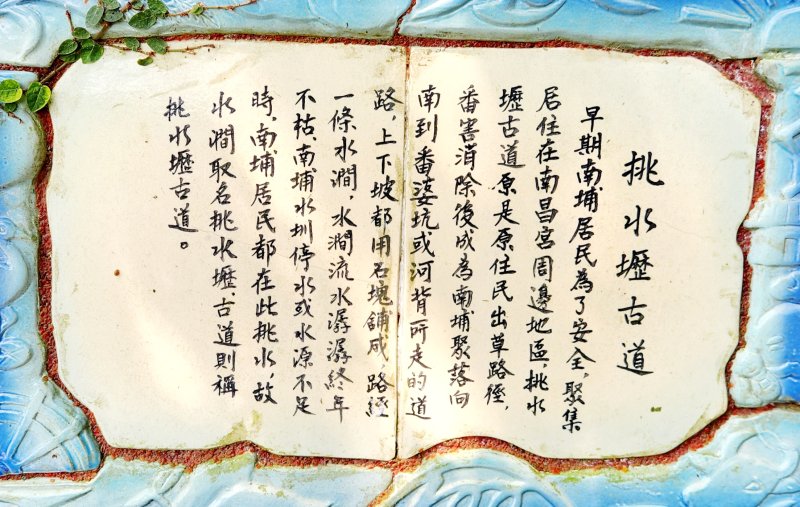 挑水壢古道
早期南埔居民為了安全，聚集
居住在南昌宮周邊地區，挑水
壢古道原是原住民出草路徑，
番害消除後成為南埔聚落向
南到番婆坑或河背所走的道
路，上下坡都用石塊舖成，路經
一條水澗，水澗流水潺潺終年
不枯，南埔水圳停水或水源不足
時，南埔居民都在此挑水，故
水澗取名挑水壢、古道則稱
挑水壢古道。